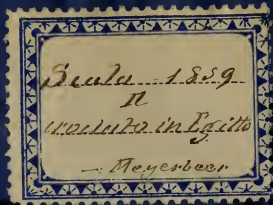 Scala 1859
Il
crociato in Egitto
Meyerbeer